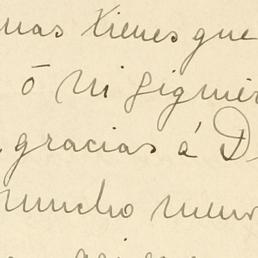 mas tienes que
ó ni sigui
gracias á D
mucho men